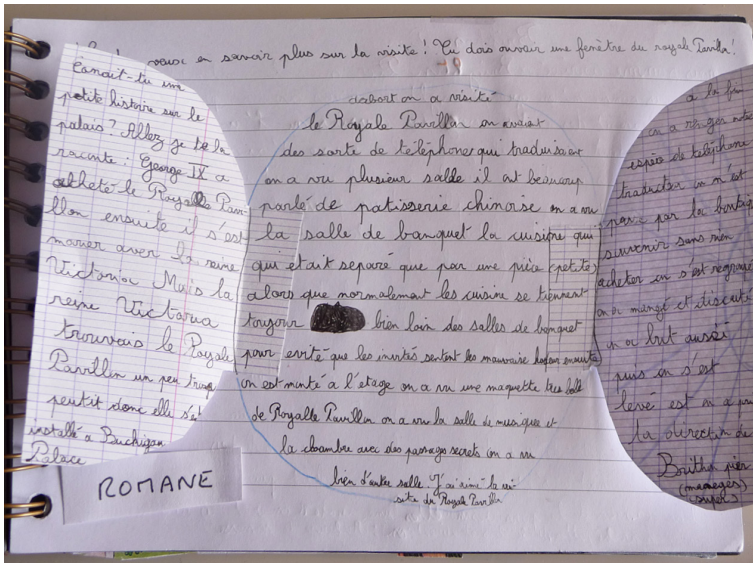 veux en savoir plus sur la visite! Tu dois ouvrir une fenêtre du royale Pavillin!
Connait-tu une
petite histoire sur le
palais? Allez je te la
raconte: George IX a
acheté le Royalle Pavi-
llon ensuite il s'est
marier avec la reine
Victoria Mais la
reine Victoria
trouvais le Royale
Pavillin un peu trop
peutit donc elle s'est
installé a Buckigan
Palace
ROMANE
dabort on a visité
le Royale Pavillin on avait
des sorte de téléphones qui traduisaient
on a vu plusieur salle il ont beaucoup
parlé de patisserie chinoise on a vu
la salle de banquet la cuisine qui
qui était separé que par une pièce (petite)
alors que normalement les cuisine se tiennent
toujour bien loin des salles de banquet
pour evité que les invités sentent les mauvaise ensuite
on est monté à l'étage on a vu une maquette tres belle
de Royalle Pavillin on a vu la salle de musique et
la chambre avec des passages secrets on a vu
bien d'autre salle. J'ai aimé la vi-
site du Royale Pavillin
a la fin
on a ranger notre
espèce de téléphone
traducteur on n'est
passé par la boutique
souvenir sans rien
acheter on s'est regroupé
on a mangé et discuté
on a but aussi
puis on s'est
levé est on a pris
la direction de
Brithon pier
(maneges
super)